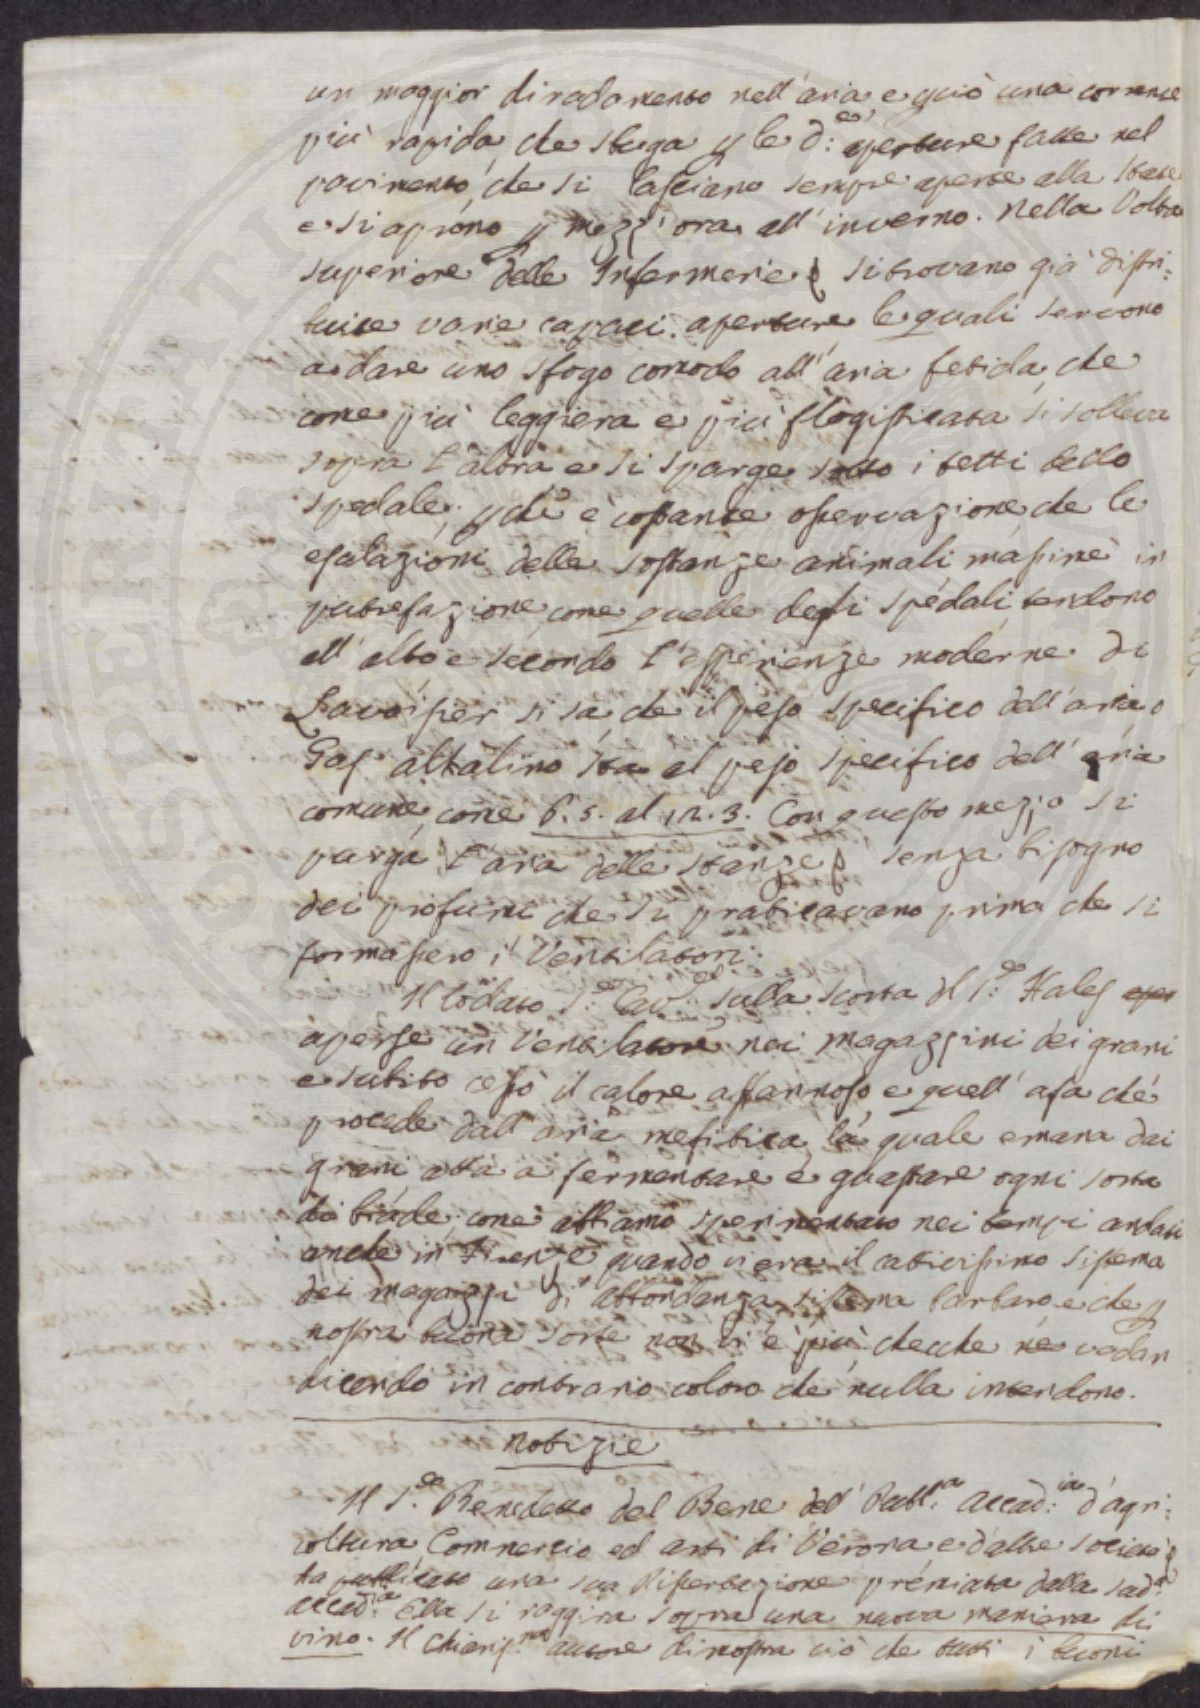 un maggior diradamento nell'aria e quiò una corrente
più rapida, che sfuga p le d:e aperture fatte nel
pavimento, che si lasciano sempre aperte alla state
e si aprono p mezz'ora all'inverno. Nella Volta
superiore delle Infermerie si trovano già distri:
buite varie capaci aperture le quali servono
a dare uno sfogo comodo all'aria fetida, che
come più leggiera e più flogisticata si solleva
sopra l'altra e si sparge sotto i tetti dello
spedale; p che è costante osservazione che le
esalazioni delle sostanze animali massime in
putrefazione come quelle degli spedali tendono
all'alto e secondo l'esperienze moderne di
Lavoisier si sà che il peso specifico dell'aria o
Gas alkalino sta al peso specifico dell'aria
comune come 6.5. al 12.3. Con questo mezzo si
purga l'aria delle stanze senza bisogno
dei profumi che si praticavano prima che si
formassero i Ventilatori.
Il lodato S.e Cav.e sulla scorta del S.e Hales
aperse un Ventilatore nei magazzini dei grani
e subito cessò il calore affannoso e quell'afa che
procede dall'aria mefitica, la quale emana dai
grani atta a fermentare e guastare ogni sorta
di biade, come abbiamo sperimentato nei tempi andati
anche in Firenze quando vi era il cattivissimo sistema
dei magazzi di abbondanza, sistema barbaro e che p
nostra buona sorte non vi è più, checche ne vadan
dicendo in contrario coloro che nulla intendono.
Notizie
Il S.e Benedetto del Bene dell'Pubb.a Accad:ia d'agri:
coltura, Commercio ed arti di Verona e d'altre società
ha pubblicato una sua Dissertazione premiata dalla sud.a
Accad.a Ella si raggira sopra una nuova maniera di
vino. Il Chiariss.mo autore dimostra ciò che tutti i buoni